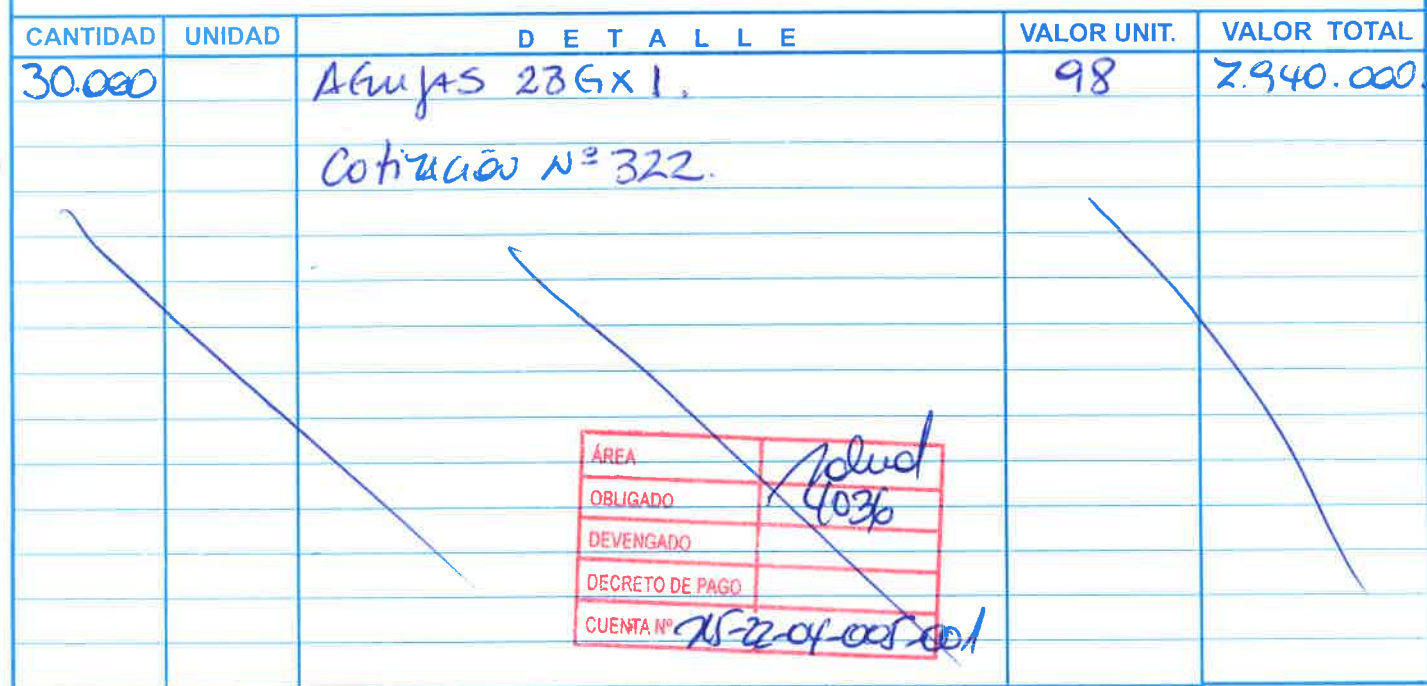 CANTIDAD UNIDAD DETALLE VALOR UNIT. VALOR TOTAL
30.000 Agujas 23Gx1. 98 2.940.000.
Cotización Nº 322.
ÁREA Salud
OBLIGADO 4036
DEVENGADO
DECRETO DE PAGO
CUENTA Nº 215-22-04-005-001